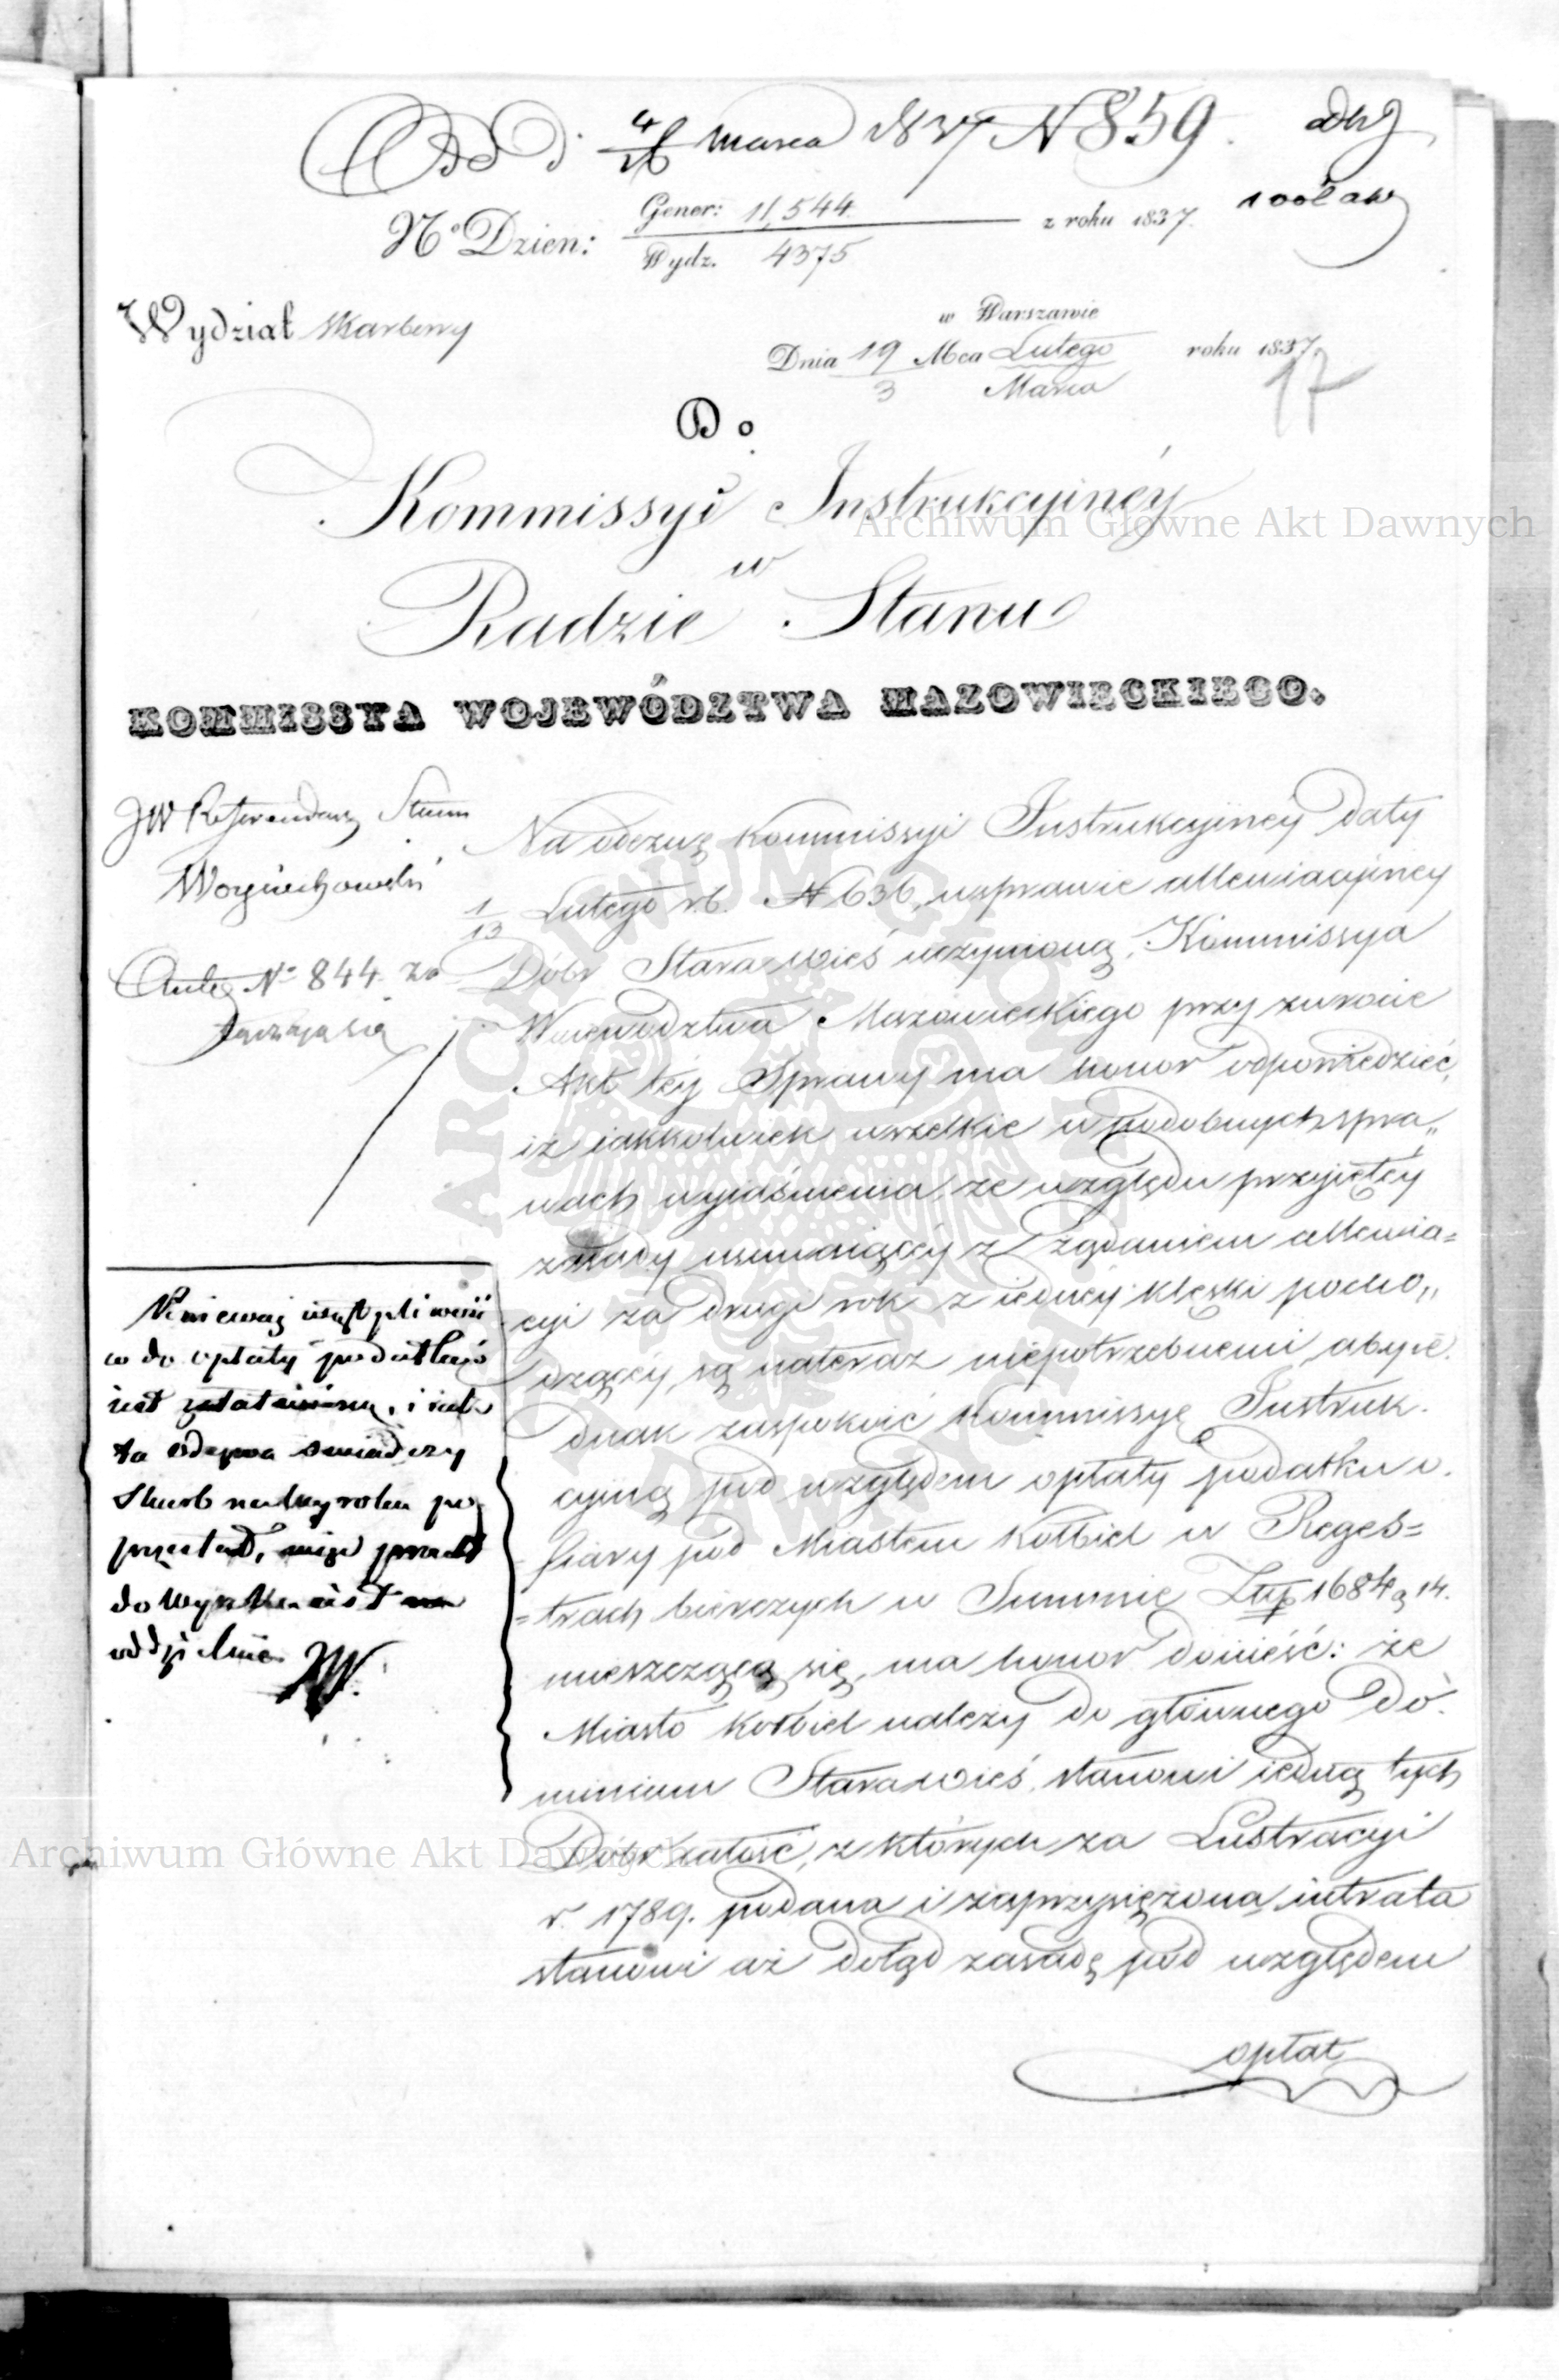 Odd. 4/16 Marca 1837 N 859.
No Dzien: Gener: 11,544. z roku 1837.
Wydz. 4375
Wydział Skarbowy
w Warszawie
Dnia 19 Mca Lutego roku 1837.
3 Marca
17
Do
Kommissyi Instrukcyinéy
w
Radzie Stanu
KOMMISSYA WOJEWÓDZTWA MAZOWIECKIEGO.
JW Referendarz Stanu
Woyciechowski
Ante No 844 za
łącza się
Na odezwę Kommissyi Instrukcyiney daty
1/13 Lutego r.b. N 636, w sprawie allewiacyiney
Dóbr Starawieś uczynioną, Kommissya
Woiewództwa Mazowieckiego przy zwrocie
Akt téy Sprawy ma honor odpowiedzieć,
iż iakkolwiek wszelkie w podobnych spra„
wach wyiaśnienia, ze względu przyiętéy
zasady usuwaiącéy z żądaniem allewia=
cyi za drugi rok z iednéy klęski pocho„
dzącéy, są na teraz niepotrzebnemi, aby ie.
dnak zaspokoić Kommissyę Instruk.
cyiną pod względem opłaty podatku o.
fiary pod Miastem Kołbiel w Reges=
=trach bierczych w Summie Złp 1684 g 14.
mieszczącą się, ma honor donieść: że
Miasto Kołbiel należy do głównego Do.
minium Starawieś, stanowi iedną tych
Dóbr całość, z których za Lustracyi
r. 1789. podana i zaprzysiężona intrata
stanowi aż dotąd zasadę pod względem
opłat
Ponieważ
w do opłaty podatków
iest
ta odezwa świadczy
Skarb
do
oddzielnie JW.
Archiwum Główne Akt Dawnych
Archiwum Główne Akt Dawnych
ARCHIWUM GŁÓWNE AKT DAWNYCH